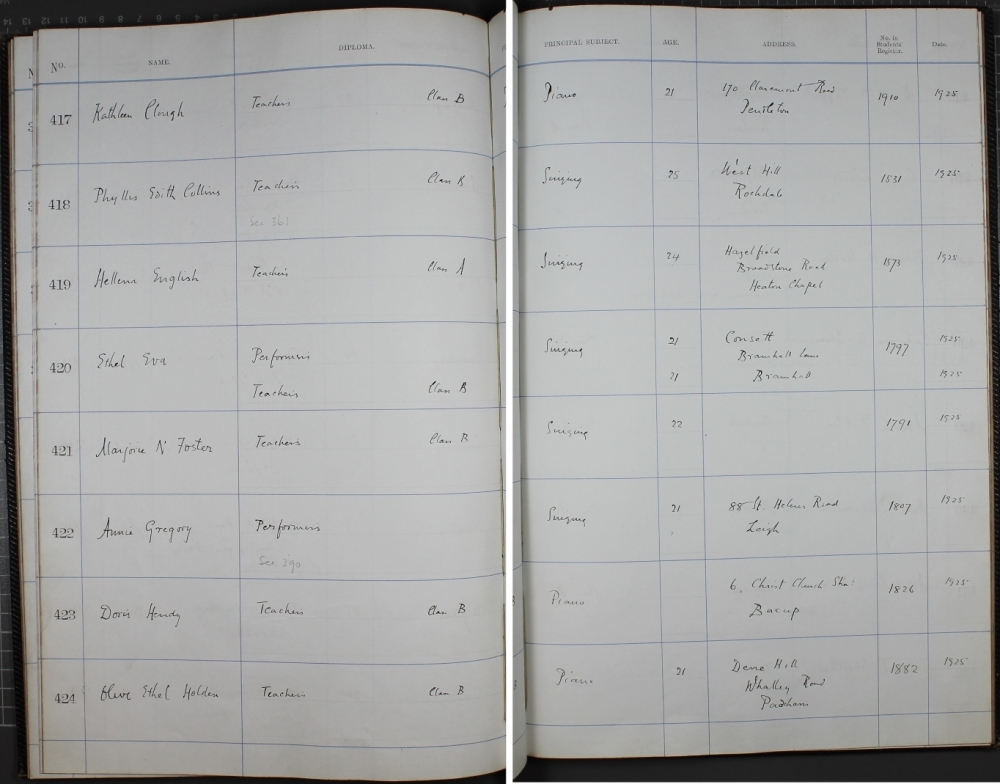 No. NAME. DIPLOMA. PRINCIPAL SUBJECT. AGE. ADDRESS. No. in Students' Register. Date.
417 Kathleen Clough Teachers Class B Piano 21 170 Claremont Road 1910 1925
Pendleton
418 Phyllis Edith Collins Teachers Class B Singing 25 West Hill 1531 1925
Rochdale
See 361
419 Hellena English Teachers Class A Singing 24 Hazelfield 1573 1925
Broadstone Road
Heaton Chapel
420 Ethel Eva Performers Singing 21 Consett 1797 1925
Bramhall Lane
Teachers Class B 21 Bramhall 1925
421 Marjorie N Foster Teachers Class B Singing 22 1791 1925
422 Annie Gregory Performers Singing 21 88 St. Helens Road 1807 1925
Leigh
See 390
423 Doris Hendy Teachers Class B Piano 6, Christ Church 1826 1925
Bacup
424 Olive Ethel Holden Teachers Class B Piano 21 Dene Hill 1882 1925
Whalley Road
Padiham